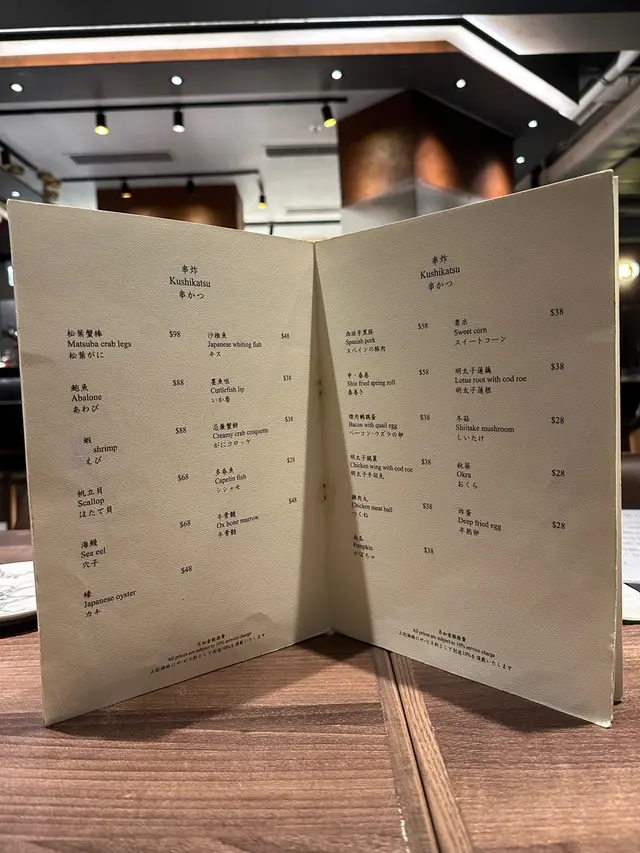 串炸
Kushikatsu
串かつ
松葉蟹棒
Matsuba crab legs
松葉がに
$98
鮑魚
Abalone
あわび
$88
蝦
shrimp
えび
$88
帆立貝
Scallop
ほたて貝
$68
海鰻
Sea eel
穴子
$68
蠔
Japanese oyster
カキ
$48
沙殘魚
Japanese whiting fish
キス
$48
墨魚咀
Cuttlefish lip
いか巻
$38
忌廉蟹餅
Creamy crab croquette
がにコロッケ
$38
多春魚
Capelin fish
シシャモ
$28
牛骨髓
Ox bone marrow
牛骨髄
$48
另加壹服務費
All prices are subject to 10% service charge
上記価格にサービス料として別途10%を頂戴いたします
串炸
Kushikatsu
串かつ
西班牙黑豚
Spanish pork
スペインの豚肉
$58
申・春卷
Shin fried spring roll
春巻き
$58
煙肉鵪鶉蛋
Bacon with quail egg
ベーコン・ウズラの卵
$38
明太子雞翼
Chicken wing with cod roe
明太子手羽先
$38
雞肉丸
Chicken meat ball
つくね
$38
南瓜
Pumpkin
かぼちゃ
$38
粟米
Sweet corn
スイートコーン
$38
明太子蓮藕
Lotus root with cod roe
明太子蓮根
$38
冬菇
Shiitake mushroom
しいたけ
$28
秋葵
Okra
おくら
$28
炸蛋
Deep fried egg
半熟卵
$28
另加壹服務費
All prices are subject to 10% service charge
上記価格にサービス料として別途10%を頂戴いたします